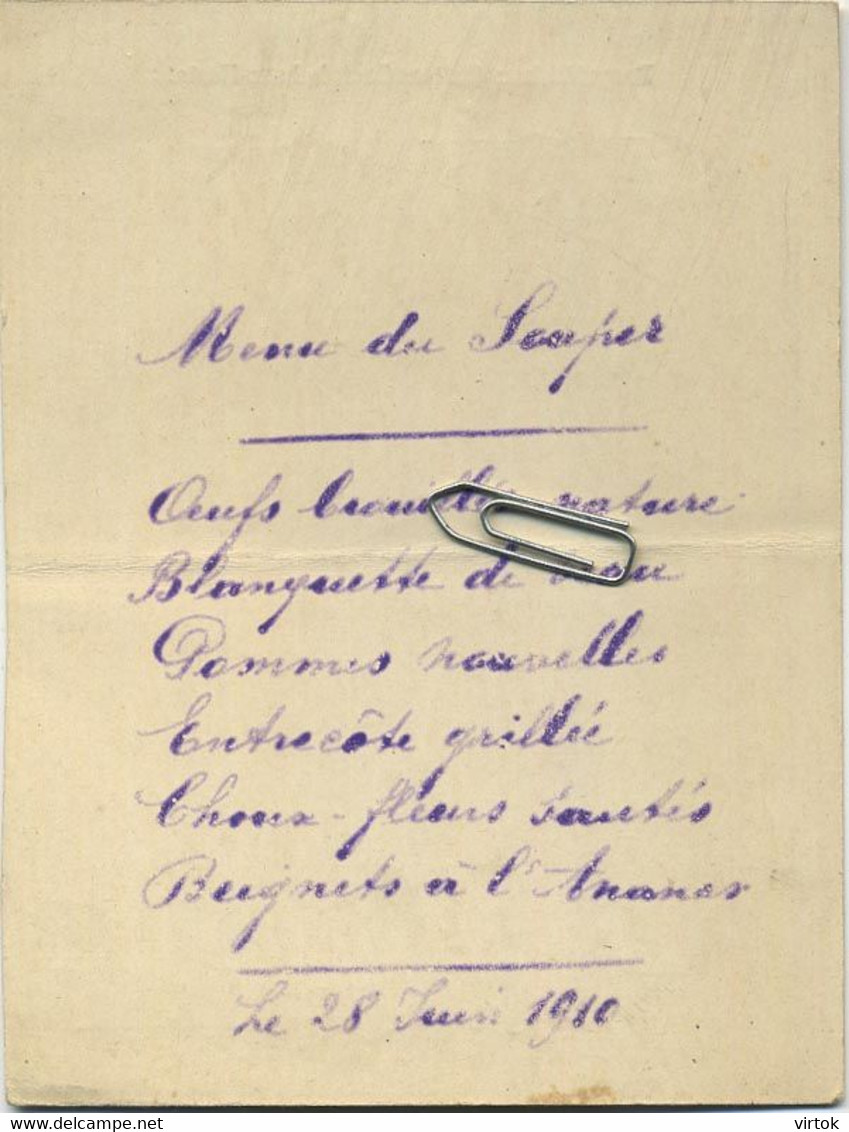 Menu du Souper
Oeufs brouillés nature
Blanquette de veau
Pommes nouvelles
Entrecôte grillée
Choux-fleurs sautés
Beignets à l'Ananas
Le 28 Juin 1910
delcampe.net
virtok